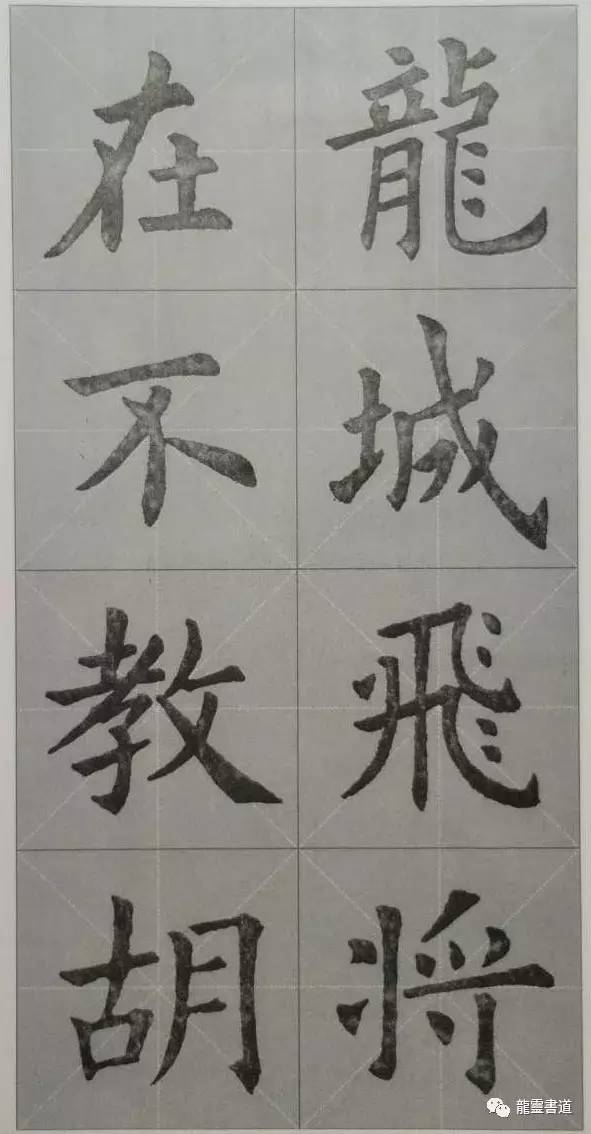 龍城飛将
在不教胡
龍靈書道